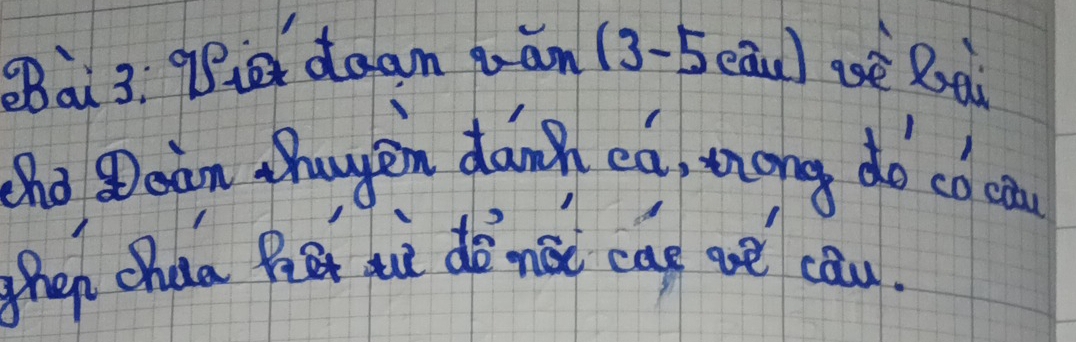 Bài 3: Viết đoạn văn (3-5 câu) về bài
thơ Đoàn thuyền đánh cá, trong đó có câu
ghép chứa kết từ để nối các vế câu.